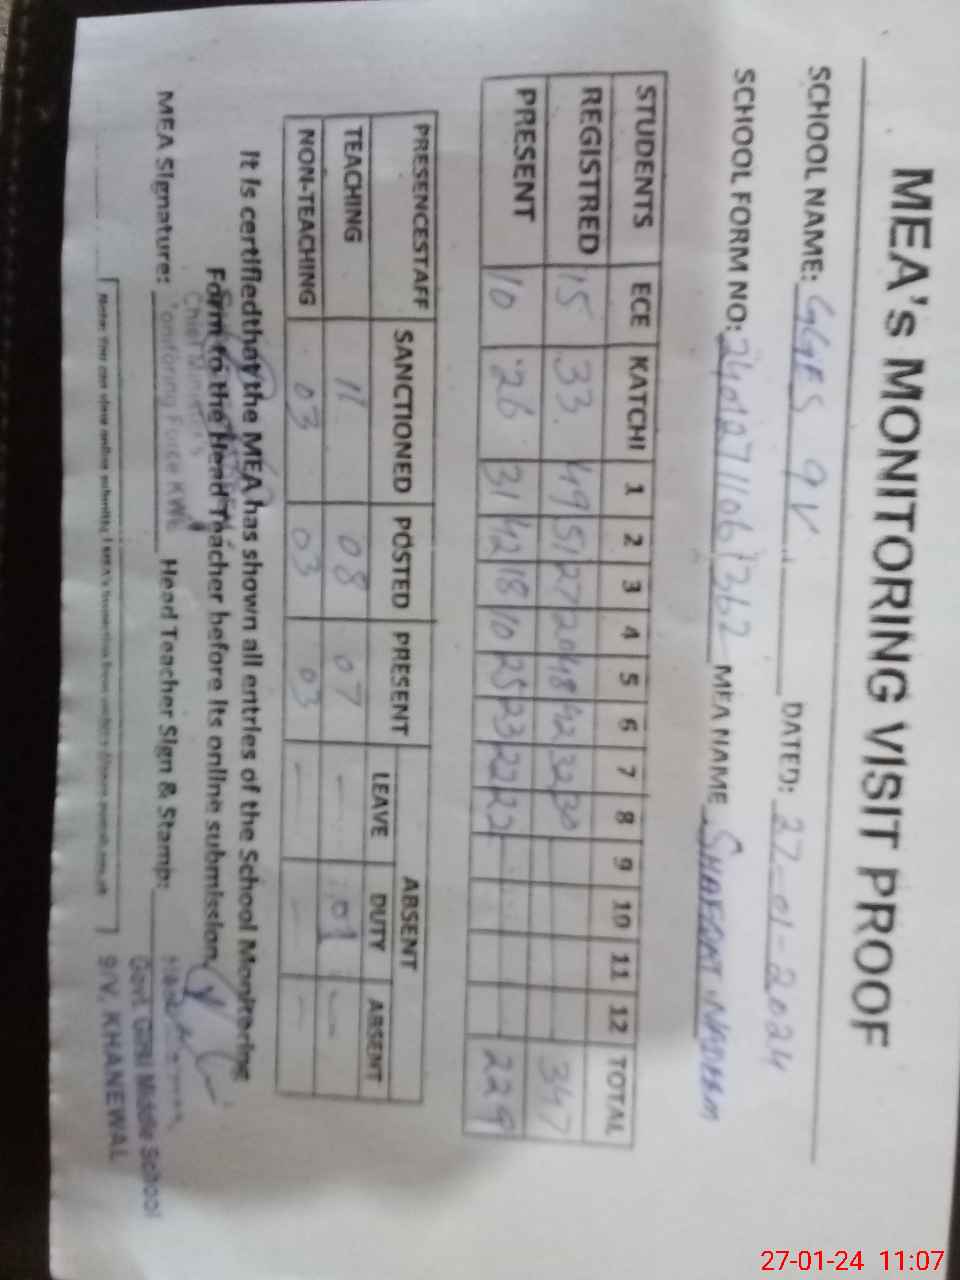 MEA's MONITORING VISIT PROOF
SCHOOL NAME: GGES 9V. DATED: 27-01-2024
SCHOOL FORM NO: MEA NAME SHAFQAT NADEEM
STUDENTS ECE KATCHI 1 2 3 4 5 6 7 8 9 10 11 12 TOTAL
REGISTRED 15 33 49 51 27 20 48 42 32 30 347
PRESENT 10 26 31 42 18 10 25 23 22 22 229
PRESENCESTAFF SANCTIONED POSTED PRESENT ABSENT
LEAVE DUTY ABSENT
TEACHING 11 08 07 — 01 —
NON-TEACHING 03 03 03 — — —
It is certifiedthat the MEA has shown all entries of the School Monitoring
Form to the Head Teacher before its online submission.
Chief Minister's
Monitoring Force KWL
MEA Signature: Head Teacher Sign & Stamp:
Govt. Girl Middle School
9/V, KHANEWAL
27-01-24 11:07